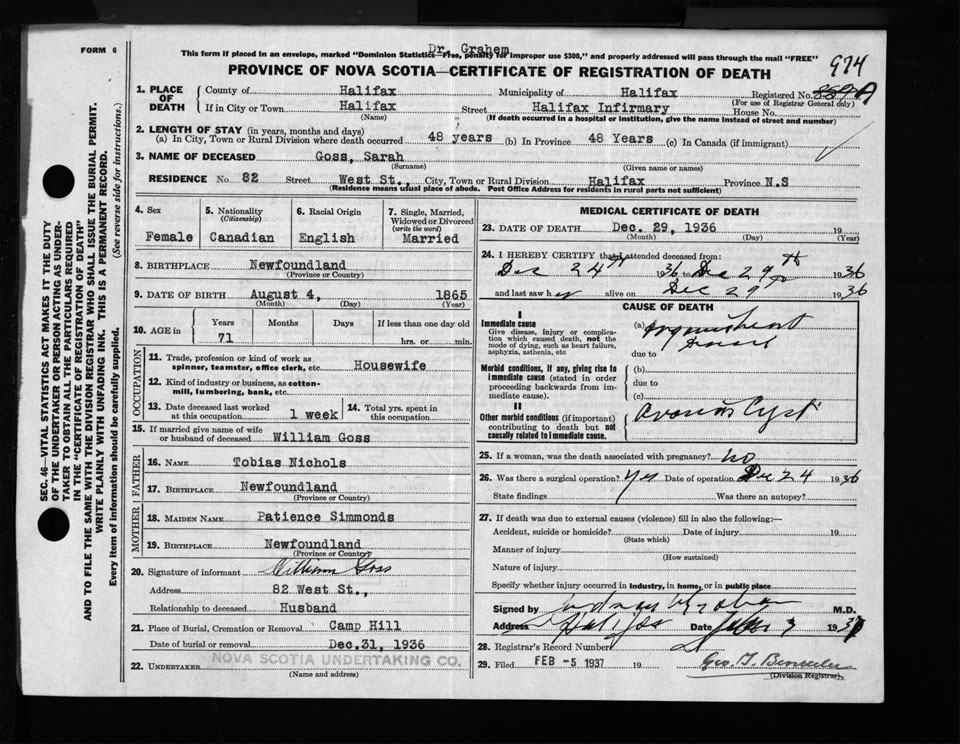 FORM 6
Dr. Grahem
This form if placed in an envelope, marked "Dominion Statistics—Free, penalty for improper use $300," and properly addressed will pass through the mail "FREE"
974
PROVINCE OF NOVA SCOTIA—CERTIFICATE OF REGISTRATION OF DEATH
1. PLACE OF DEATH
County of Halifax Municipality of Halifax Registered No.
(For use of Registrar General only)
If in City or Town Halifax Street Halifax Infirmary House No.
(Name) (If death occurred in a hospital or institution, give the name instead of street and number)
2. LENGTH OF STAY (in years, months and days)
(a) In City, Town or Rural Division where death occurred 48 years (b) In Province 48 Years (c) In Canada (if immigrant)
3. NAME OF DECEASED Goss, Sarah
(Surname) (Given name or names)
RESIDENCE No 82 Street West St., City, Town or Rural Division Halifax Province N.S
(Residence means usual place of abode. Post Office Address for residents in rural parts not sufficient)
4. Sex
Female
5. Nationality
(Citizenship)
Canadian
6. Racial Origin
English
7. Single, Married, Widowed or Divorced
(write the word)
Married
8. BIRTHPLACE Newfoundland
(Province or Country)
9. DATE OF BIRTH August 4, 1865
(Month) (Day) (Year)
10. AGE in
Years Months Days If less than one day old
71 hrs. or min.
OCCUPATION
11. Trade, profession or kind of work as
spinner, teamster, office clerk, etc. Housewife
12. Kind of industry or business, as cotton-
mill, lumbering, bank, etc.
13. Date deceased last worked
at this occupation. 1 week
14. Total yrs. spent in
this occupation.
15. If married give name of wife
or husband of deceased William Goss
FATHER
16. NAME Tobias Nichols
17. BIRTHPLACE Newfoundland
(Province or Country)
MOTHER
18. MAIDEN NAME Patience Simmonds
19. BIRTHPLACE Newfoundland
(Province or Country)
20. Signature of informant William Goss
Address 82 West St.,
Relationship to deceased Husband
21. Place of Burial, Cremation or Removal Camp Hill
Date of burial or removal Dec.31, 1936
22. UNDERTAKER NOVA SCOTIA UNDERTAKING CO.
(Name and address)
MEDICAL CERTIFICATE OF DEATH
23. DATE OF DEATH Dec. 29, 1936 19
(Month) (Day) (Year)
24. I HEREBY CERTIFY that I attended deceased from:
Dec 24th 1936 to Dec 29th 1936
and last saw her alive on Dec 29th 1936
CAUSE OF DEATH
I
Immediate cause
Give disease, injury or complica-
tion which caused death, not the
mode of dying, such as heart failure,
asphyxia, asthenia, etc
(a)
due to
Morbid conditions, if any, giving rise to
immediate cause (stated in order
proceeding backwards from im-
mediate cause).
(b)
due to
(c)
II
Other morbid conditions (if important)
contributing to death but not
causally related to immediate cause.
Ovarian Cyst
25. If a woman, was the death associated with pregnancy? No
26. Was there a surgical operation? Yes Date of operation Dec 24 1936
State findings Was there an autopsy?
27. If death was due to external causes (violence) fill in also the following:—
Accident, suicide or homicide? Date of injury 19
(State which)
Manner of injury
(How sustained)
Nature of injury
Specify whether injury occurred in industry, in home, or in public place
Signed by M.D.
Address Halifax Date 1937
28. Registrar's Record Number
29. Filed FEB -5 1937 19
(Division Registrar)
SEC. 46—VITAL STATISTICS ACT MAKES IT THE DUTY
OF THE UNDERTAKER OR PERSON ACTING AS UNDER-
TAKER TO OBTAIN ALL THE PARTICULARS REQUIRED
IN THE "CERTIFICATE OF REGISTRATION OF DEATH"
AND TO FILE THE SAME WITH THE DIVISION REGISTRAR WHO SHALL ISSUE THE BURIAL PERMIT.
WRITE PLAINLY WITH UNFADING INK. THIS IS A PERMANENT RECORD.
Every item of information should be carefully supplied. (See reverse side for instructions.)